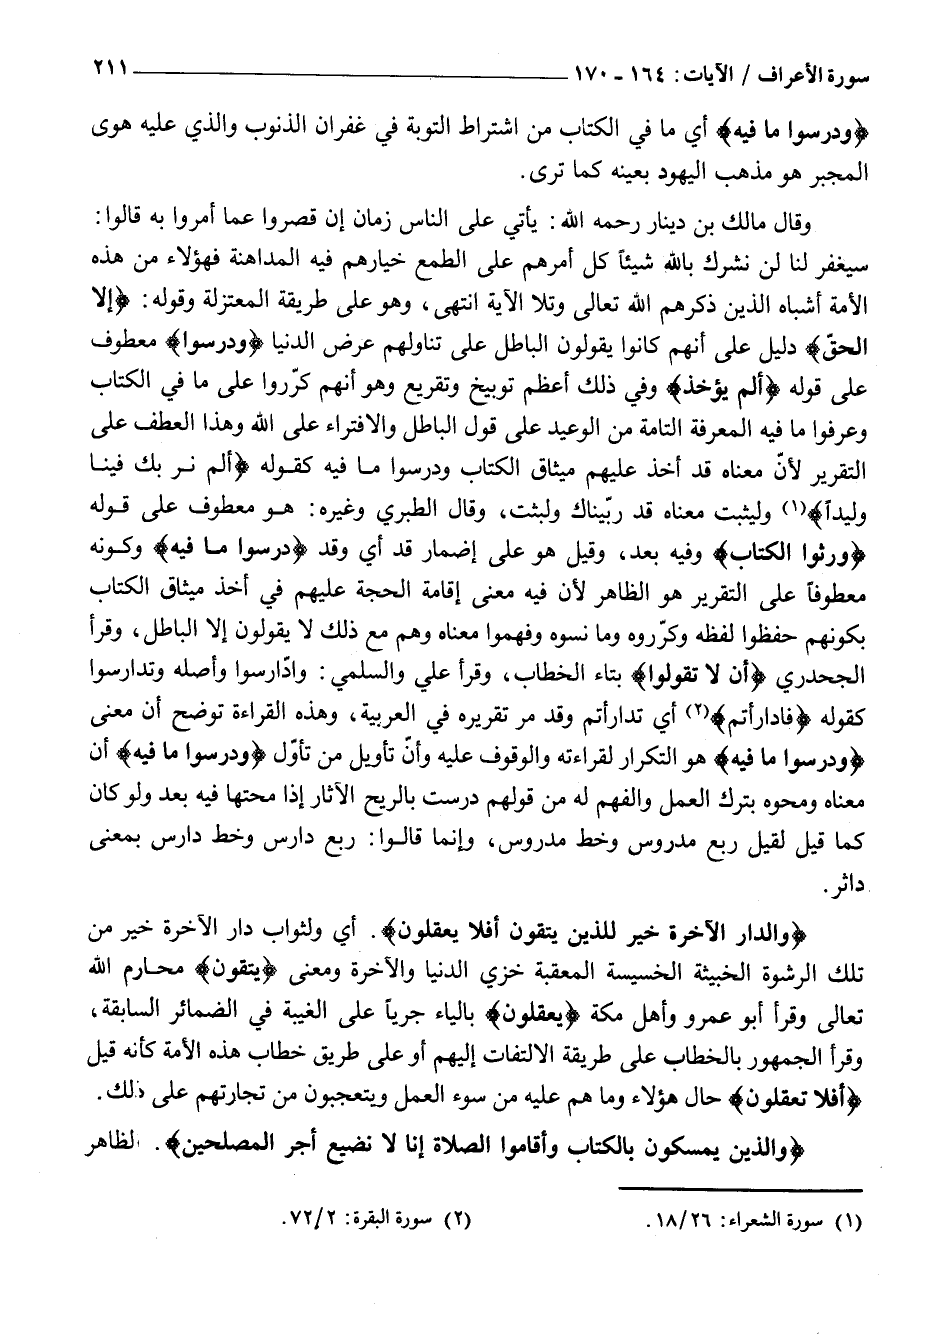 سورة الأعراف / الآيات: ١٦٤ - ١٧٠ ٢١١
﴿ودرسوا ما فيه﴾ أي ما في الكتاب من اشتراط التوبة في غفران الذنوب والذي عليه هوى
المجبر هو مذهب اليهود بعينه كما ترى.
وقال مالك بن دينار رحمه الله: يأتي على الناس زمان إن قصروا عما أمروا به قالوا:
سيغفر لنا لن نشرك بالله شيئاً كل أمرهم على الطمع خيارهم فيه المداهنة فهؤلاء من هذه
الأمة أشباه الذين ذكرهم الله تعالى وتلا الآية انتهى، وهو على طريقة المعتزلة وقوله: ﴿إلا
الحقّ﴾ دليل على أنهم كانوا يقولون الباطل على تناولهم عرض الدنيا ﴿ودرسوا﴾ معطوف
على قوله ﴿ألم يؤخذ﴾ وفي ذلك أعظم توبيخ وتقريع وهو أنهم كرّروا على ما في الكتاب
وعرفوا ما فيه المعرفة التامة من الوعيد على قول الباطل والافتراء على الله وهذا العطف على
التقرير لأنّ معناه قد أخذ عليهم ميثاق الكتاب ودرسوا ما فيه كقوله ﴿ألم نر بك فينا
وليداً﴾(١) وليثبت معناه قد ربّيناك ولبثت، وقال الطبري وغيره: هو معطوف على قوله
﴿ورثوا الكتاب﴾ وفيه بعد، وقيل هو على إضمار قد أي وقد ﴿درسوا ما فيه﴾ وكونه
معطوفاً على التقرير هو الظاهر لأن فيه معنى إقامة الحجة عليهم في أخذ ميثاق الكتاب
بكونهم حفظوا لفظه وكرّروه وما نسوه وفهموا معناه وهم مع ذلك لا يقولون إلا الباطل، وقرأ
الجحدري ﴿أن لا تقولوا﴾ بتاء الخطاب، وقرأ علي والسلمي: وادّارسوا وأصله وتدارسوا
كقوله ﴿فادارأتم﴾(٢) أي تدارأتم وقد مر تقريره في العربية، وهذه القراءة توضح أن معنى
﴿ودرسوا ما فيه﴾ هو التكرار لقراءته والوقوف عليه وأنّ تأويل من تأوّل ﴿ودرسوا ما فيه﴾ أن
معناه ومحوه بترك العمل والفهم له من قولهم درست بالريح الآثار إذا محتها فيه بعد ولو كان
كما قيل لقيل ربع مدروس وخط مدروس، وإنما قالوا: ربع دارس وخط دارس بمعنى
داثر.
﴿والدار الآخرة خير للذين يتقون أفلا يعقلون﴾. أي ولثواب دار الآخرة خير من
تلك الرشوة الخبيثة الخسيسة المعقبة خزي الدنيا والآخرة ومعنى ﴿يتقون﴾ محارم الله
تعالى وقرأ أبو عمرو وأهل مكة ﴿يعقلون﴾ بالياء جرياً على الغيبة في الضمائر السابقة،
وقرأ الجمهور بالخطاب على طريقة الالتفات إليهم أو على طريق خطاب هذه الأمة كأنه قيل
﴿أفلا تعقلون﴾ حال هؤلاء وما هم عليه من سوء العمل ويتعجبون من تجارتهم على ذلك.
﴿والذين يمسكون بالكتاب وأقاموا الصلاة إنا لا نضيع أجر المصلحين﴾. الظاهر
(١) سورة الشعراء: ١٨/٢٦. (٢) سورة البقرة: ٧٢/٢.